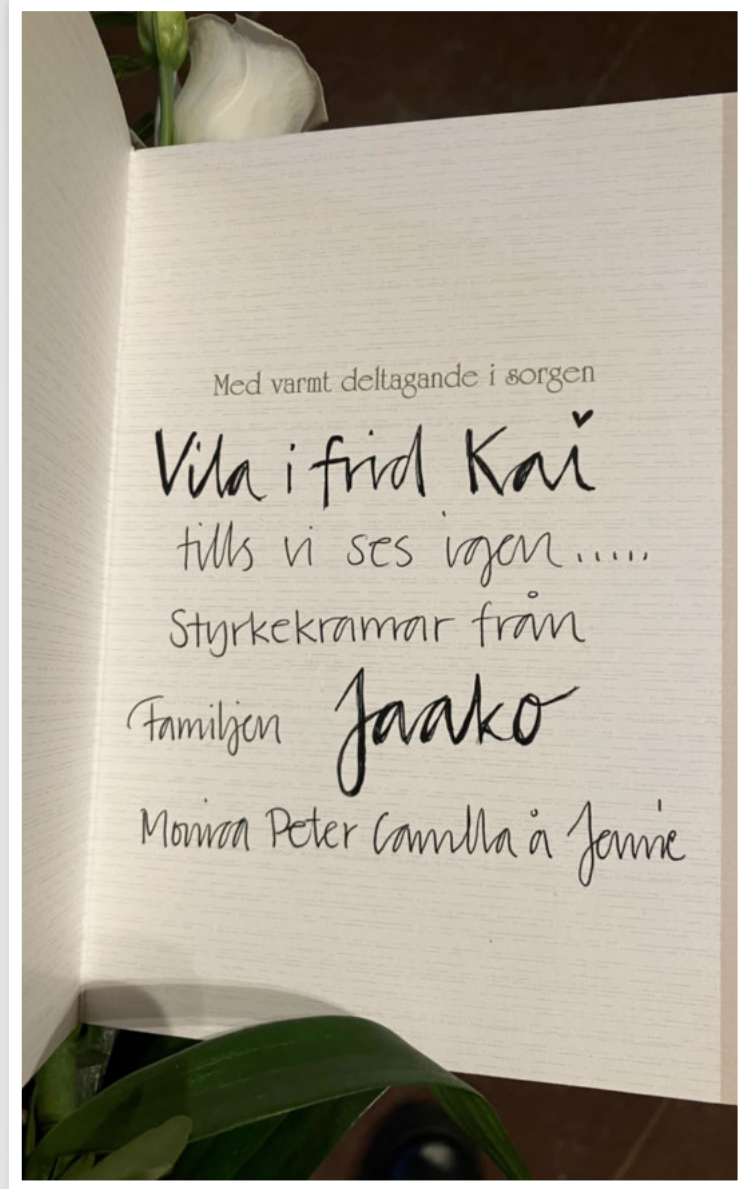 Med varmt deltagande i sorgen
Vila i frid Kai
tills vi ses igen.....
Styrkekramar från
Familjen Jaako
Monica Peter Camilla å Jennie